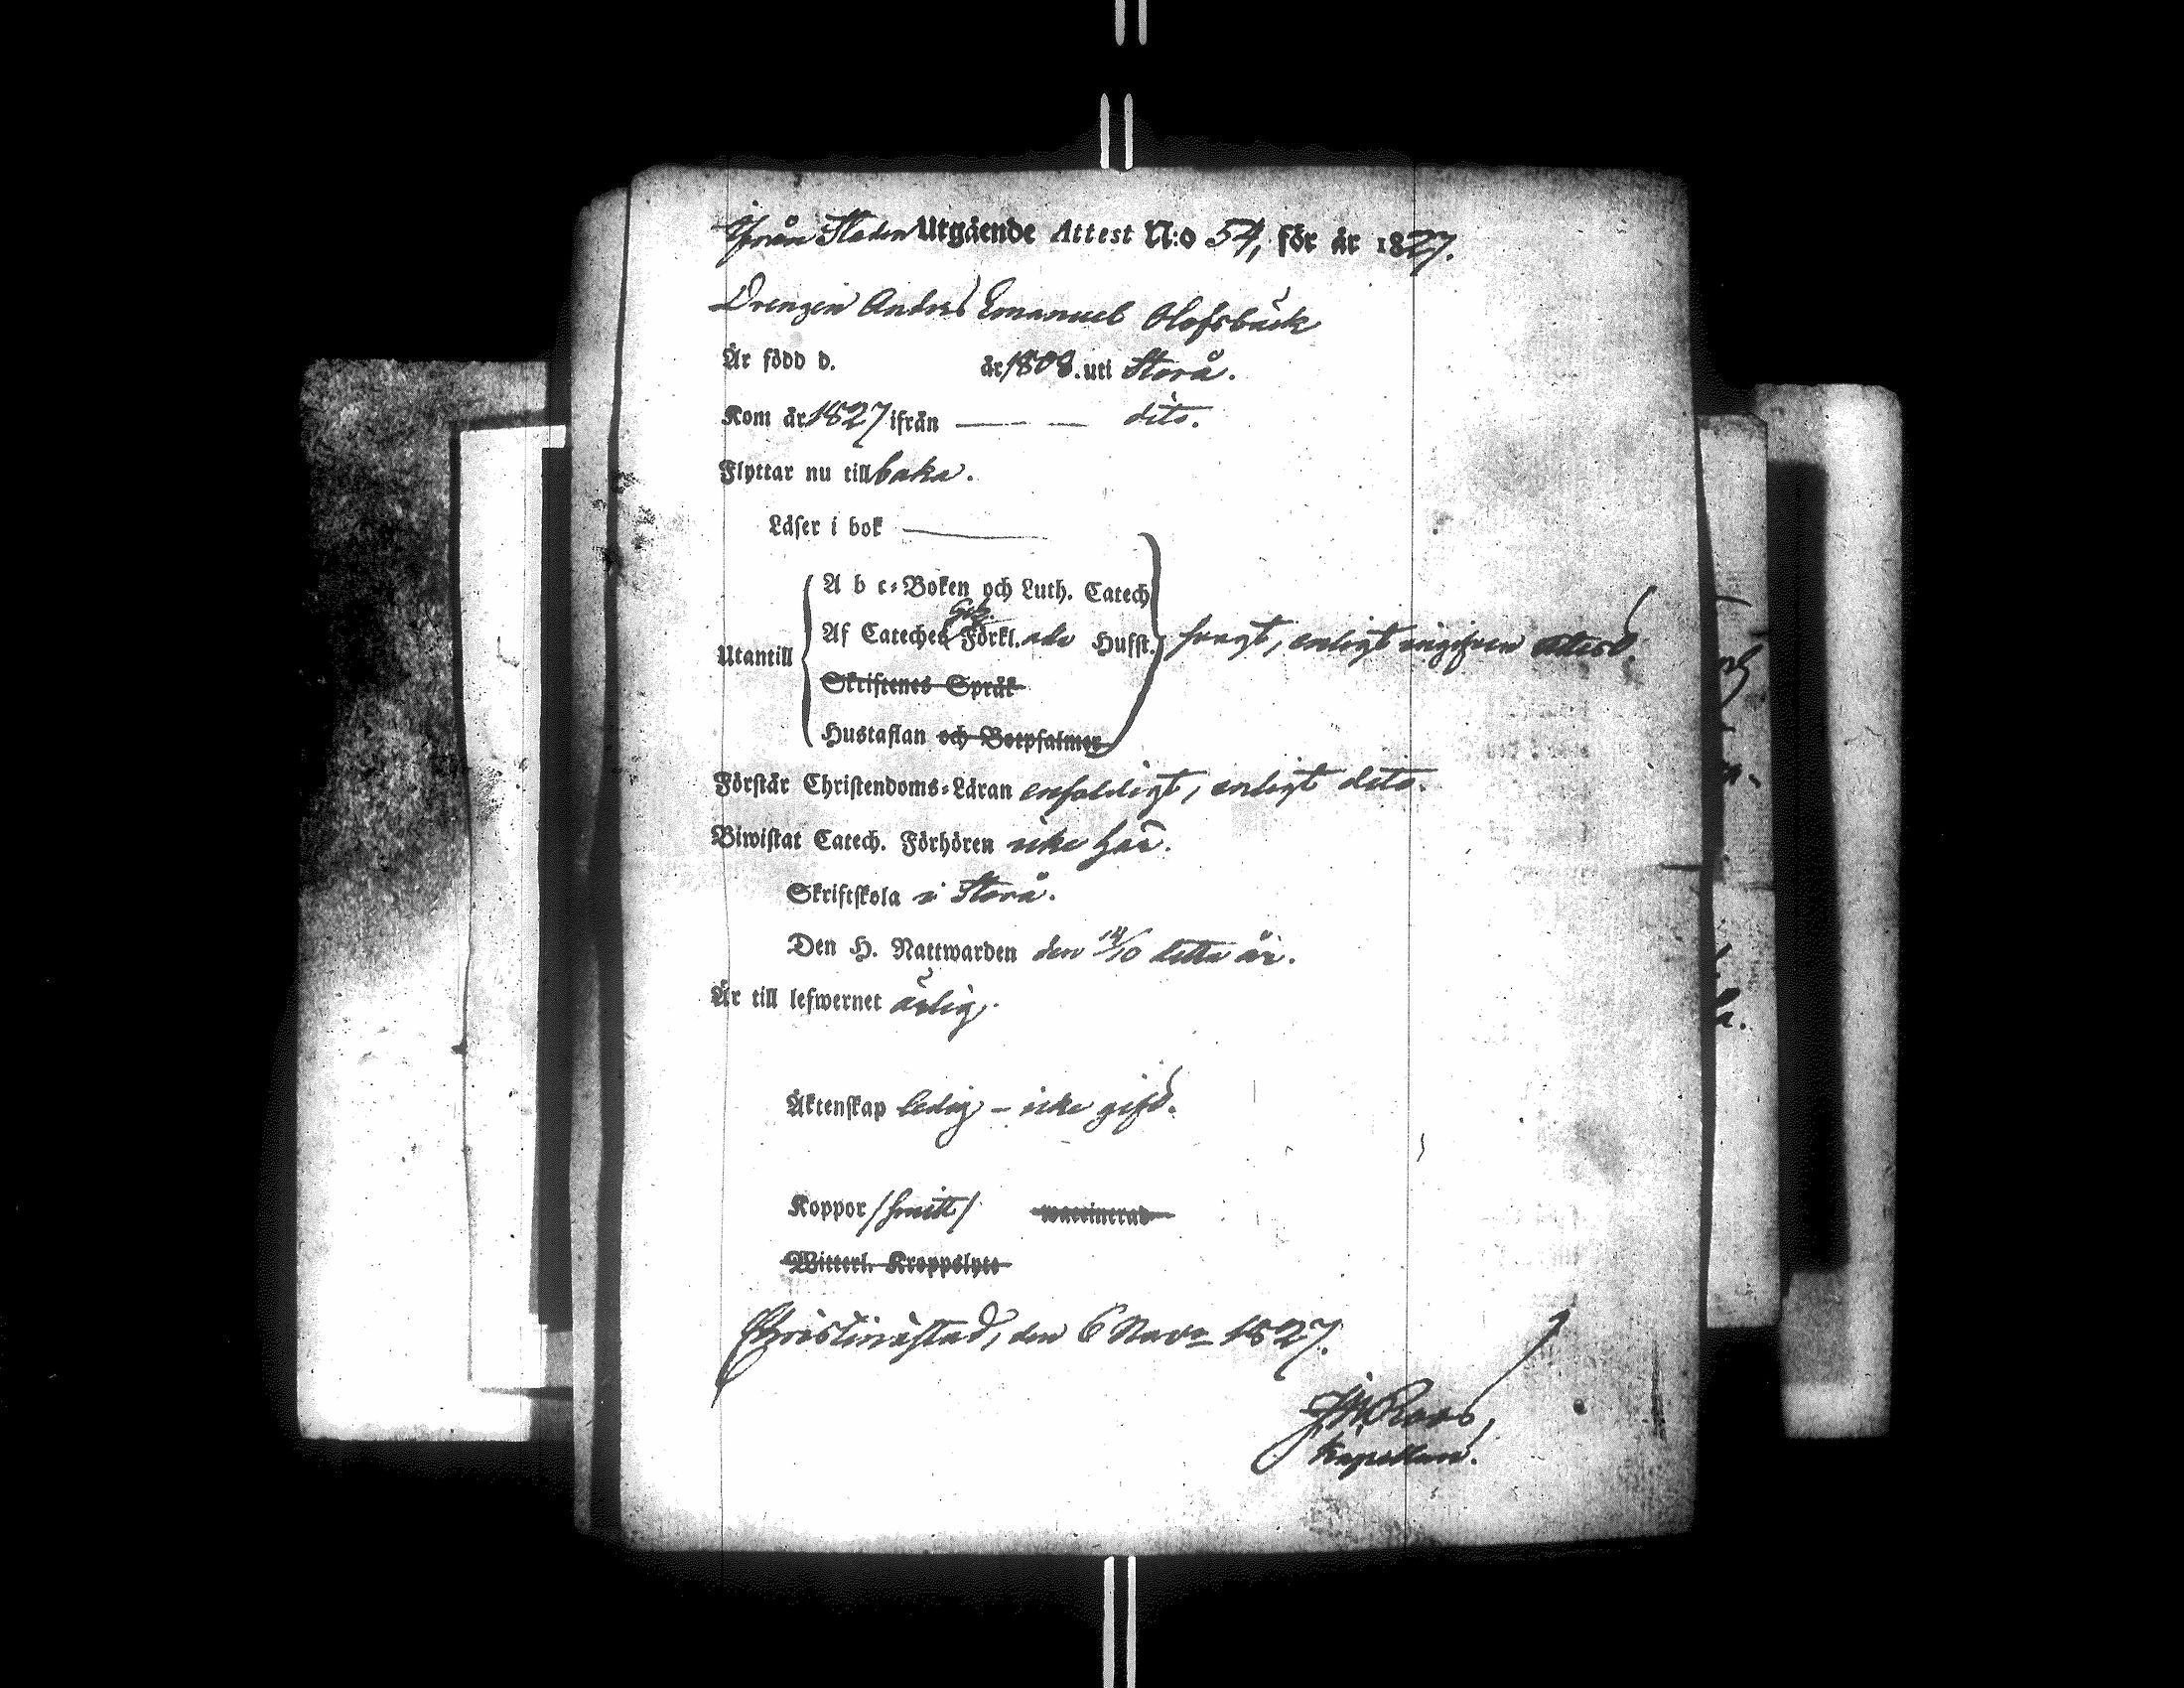 Ifrån Staden Utgående Attest N:o 54, för år 1827.
Drengen Anders Emanuel Olofsbäck
Är född d. år 1808. uti Storå.
Kom år 1827 ifrån — — dito.
Flyttar nu till baka.
Läser i bok —
A b c-Boken och Luth. Catech
Af Cateches Förkl. Husst.
Utantill svagt, enligt ingifven attest
Skriftenes Språk
Hustaflan och Botpsalmer
Förstår Christendoms-Läran enfaldigt, enligt dito.
Biwistat Catech. Förhören icke här.
Skriftskola i Storå.
Den H. Nattwarden den 14/10 detta år.
Är till lefwernet ärlig.
Äktenskap ledig – icke gift.
Koppor /haft/ waccinerad
Witterl. Kroppslyte
Christinæstad, den 6 Nov. 1827.
Roos,
Kapellan.